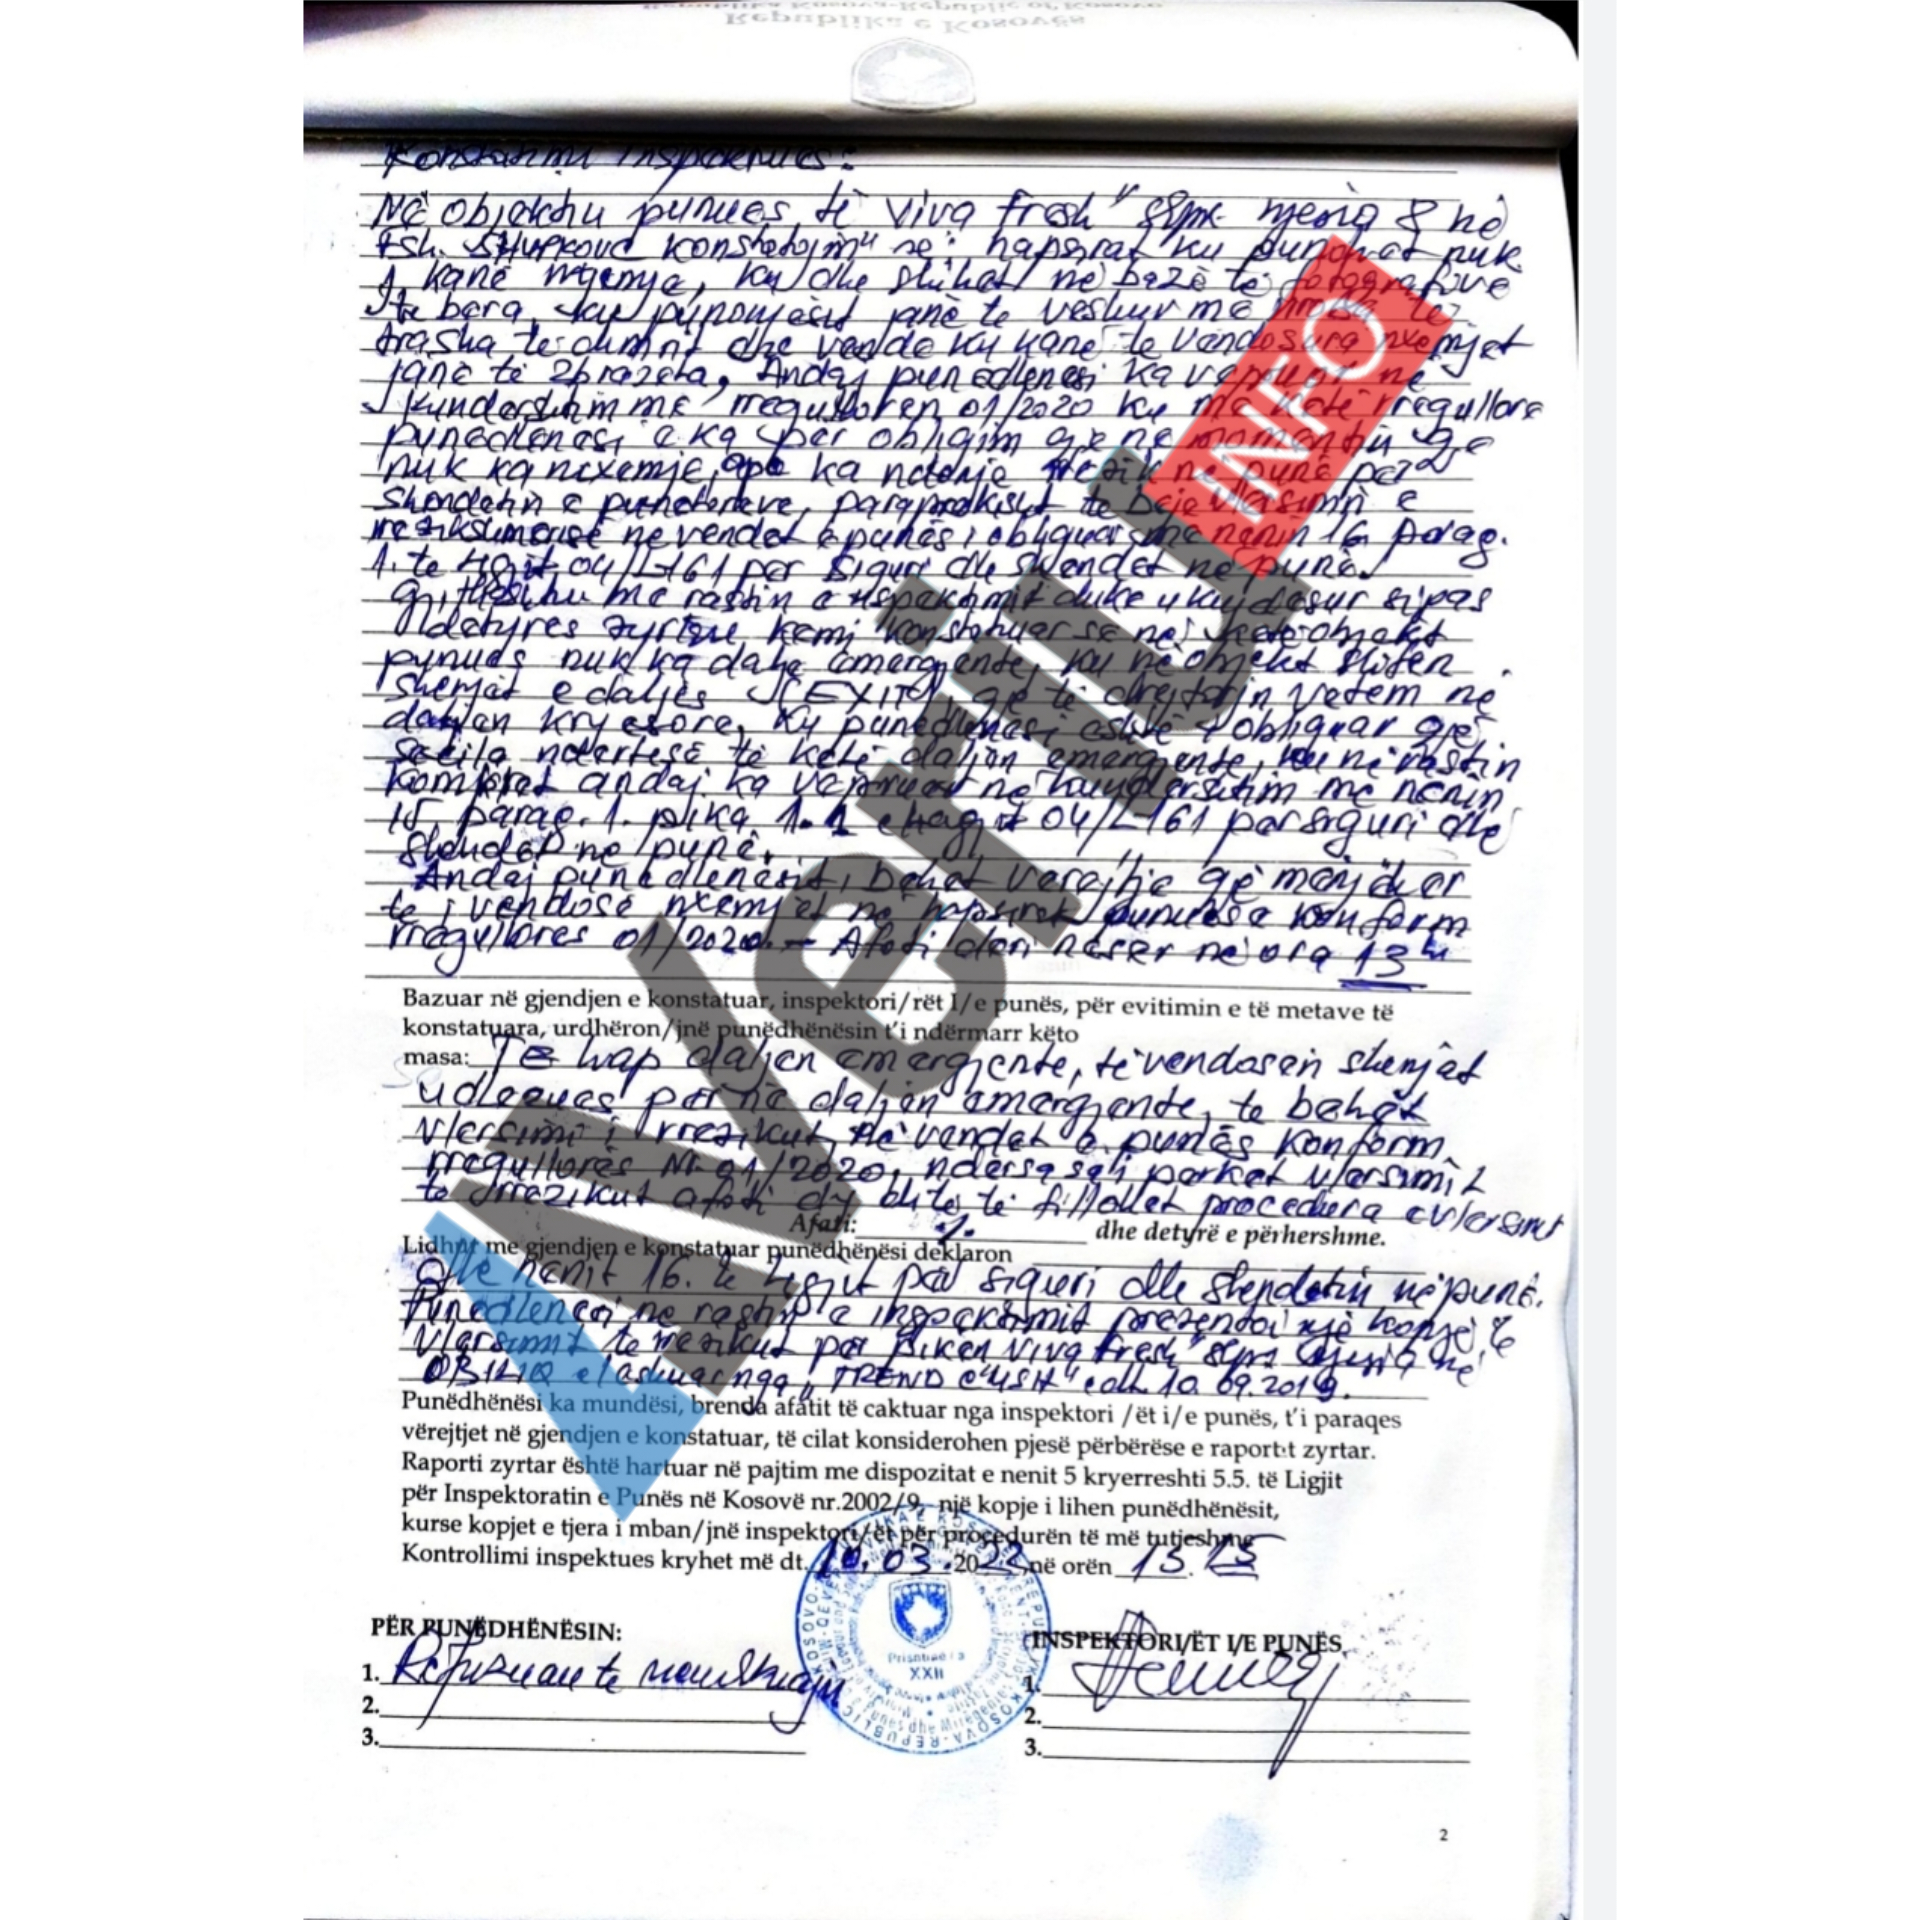 Republika Kosova-Republic of Kosovo
Republika e Kosovës
Konstatimi Inspektues:
Në objektin punues të Viva Fresh" njesia 8 në
Fsh. Shupkovc konstatojm se: hapsirat ku punohet nuk
kanë ngemje, ku dhe shihet në bazë të fotografive
të bëra, ku punonjësit janë të veshur me
trasha të dimnit dhe vende ku kanë të vendosura nxemjet
janë të zbrazëta, Andaj punëdhënësi ka vepruar në
kundërshtim me rregulloren 01/2020 ku me këtë rregullore
punëdhënësi e ka për obligim që në momentin që
nuk ka nxemje, apo ka ndonjë rrezik në punë për
shëndetin e punëtorëve, paraprakisht të bëje vlersimin e
rreziksmërisë në vendet e punës i obliguar me nenin 16 parag.
1. të ligjit 04/L-161 për siguri dhe shëndet në punë.
Gjithashtu me rastin e inspektimit duke u kujdesur sipas
detyrës zyrtare kemi konstatuar se në këtë objekt
punues nuk ka dalje emergjente, ku në objekt shifen
shenjat e daljes (EXIT), që të drejtojn vetëm në
daljen kryesore, ku punëdhënësi është i obliguar që
secila ndërtesë të ketë daljen emergjente, ku në rastin
konkret andaj ka vepruar në kundërshtim me nenin
15 parag. 1. pika 1.1 e ligjit 04/L-161 për siguri dhe
shëndet në punë.
Andaj punëdhënësit, i bëhet verejtje që menjëher
të i vendosë nxemjet në hapsirat punuese konform
rregullores 01/2020. - Afati deri neser në ora 13 h
Bazuar në gjendjen e konstatuar, inspektori/rët I/e punës, për evitimin e të metave të
konstatuara, urdhëron/jnë punëdhënësin t'i ndërmarr këto
masa: Të hap daljen emergjente, të vendosen shenjat
udhëzues për në daljen emergjente, të bëhet
vlersimi i rrezikut në vendet e punës konform
rregullorës Nr. 01/2020, ndërsa sa i përket vlersimit
të rrezikut afati dy ditë të fillohet procedura e vlersimit
Afati: %. dhe detyrë e përhershme.
Lidhur me gjendjen e konstatuar punëdhënësi deklaron
dhe nenit 16. të Ligjit për siguri dhe shëndetin në punë.
Punëdhënësi, në rastin e inspektimit prezentoi një kopje të
vlersimit të rrezikut për pikën Viva Fresh" njesia në
OBILIQ e lëshuar nga „TREND C'USH" dt. 10.09.2019.
Punëdhënësi ka mundësi, brenda afatit të caktuar nga inspektori /ët i/e punës, t'i paraqes
vërejtjet në gjendjen e konstatuar, të cilat konsiderohen pjesë përbërëse e raportit zyrtar.
Raporti zyrtar është hartuar në pajtim me dispozitat e nenit 5 kryerreshti 5.5. të Ligjit
për Inspektoratin e Punës në Kosovë nr.2002/9, një kopje i lihen punëdhënësit,
kurse kopjet e tjera i mban/jnë inspektori/ët për procedurën të më tutjeshme
Kontrollimi inspektues kryhet më dt. 10.03.2022,në orën 13.15
PËR PUNËDHËNËSIN:
INSPEKTORI/ËT I/E PUNËS
1. Refuzuan të nënshkruajn
2.
3.
1.
2.
3.
Prishtinë
XXII
2
Veriu
INFO